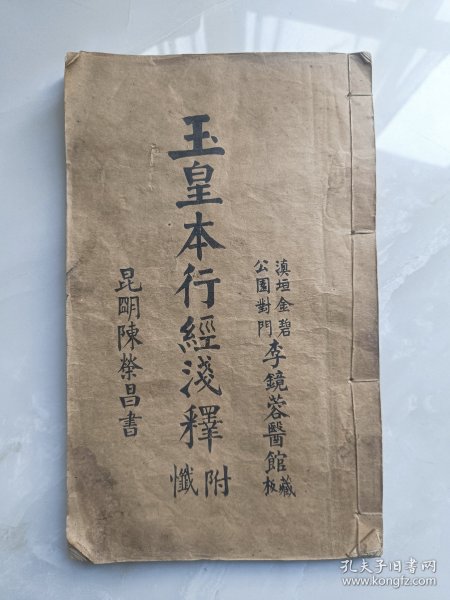 滇垣金碧
公園對門
李鏡蓉醫館
藏板
玉皇本行經淺釋
附懺
昆明陳榮昌書
孔夫子旧书网
www.kongfz.com